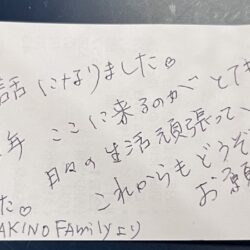 話になりました♡
年 ここに来るのが とても
日々の生活頑張って
た♡ これからもどうぞ
お願
AKINO FAMilyより